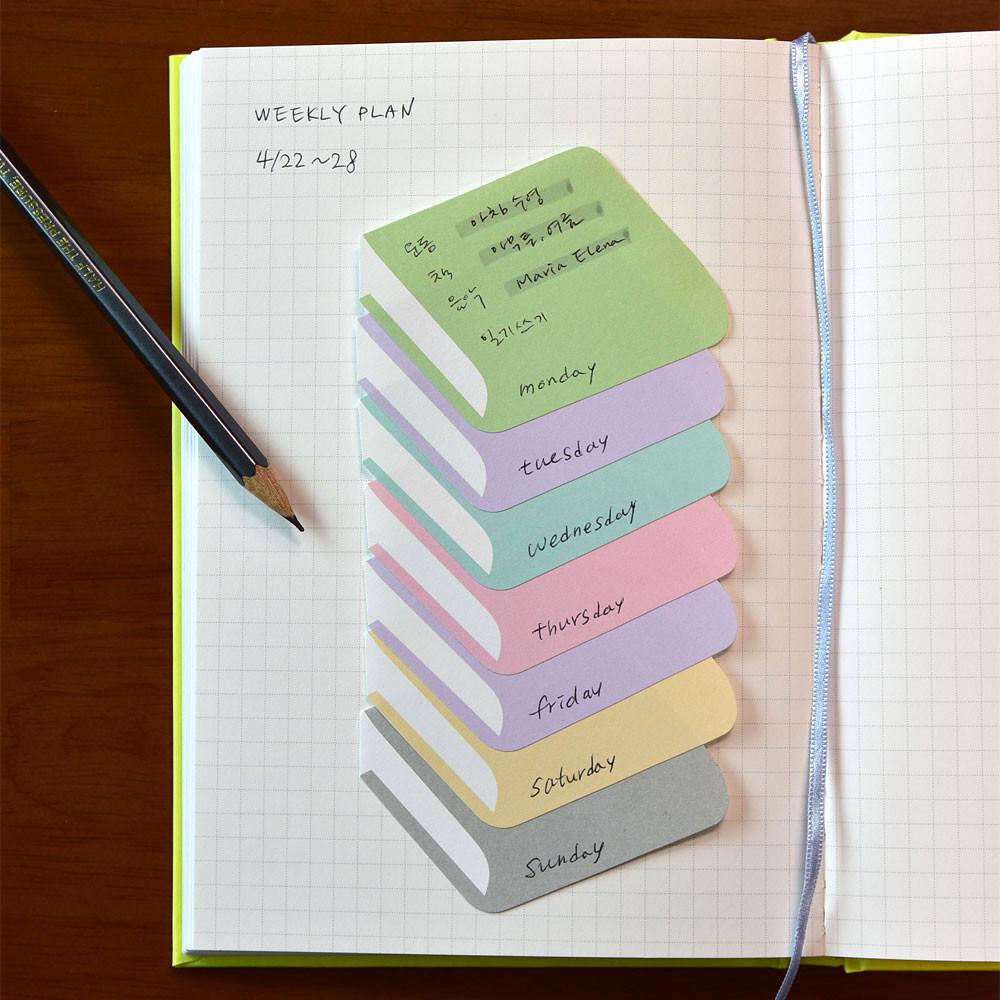 WEEKLY PLAN
4/22~28
운동 아침 수영
책 아무튼, 여름
음악 Maria Elena
일기쓰기
monday
tuesday
wednesday
thursday
friday
saturday
sunday
HALF THE PRESSURE, TW